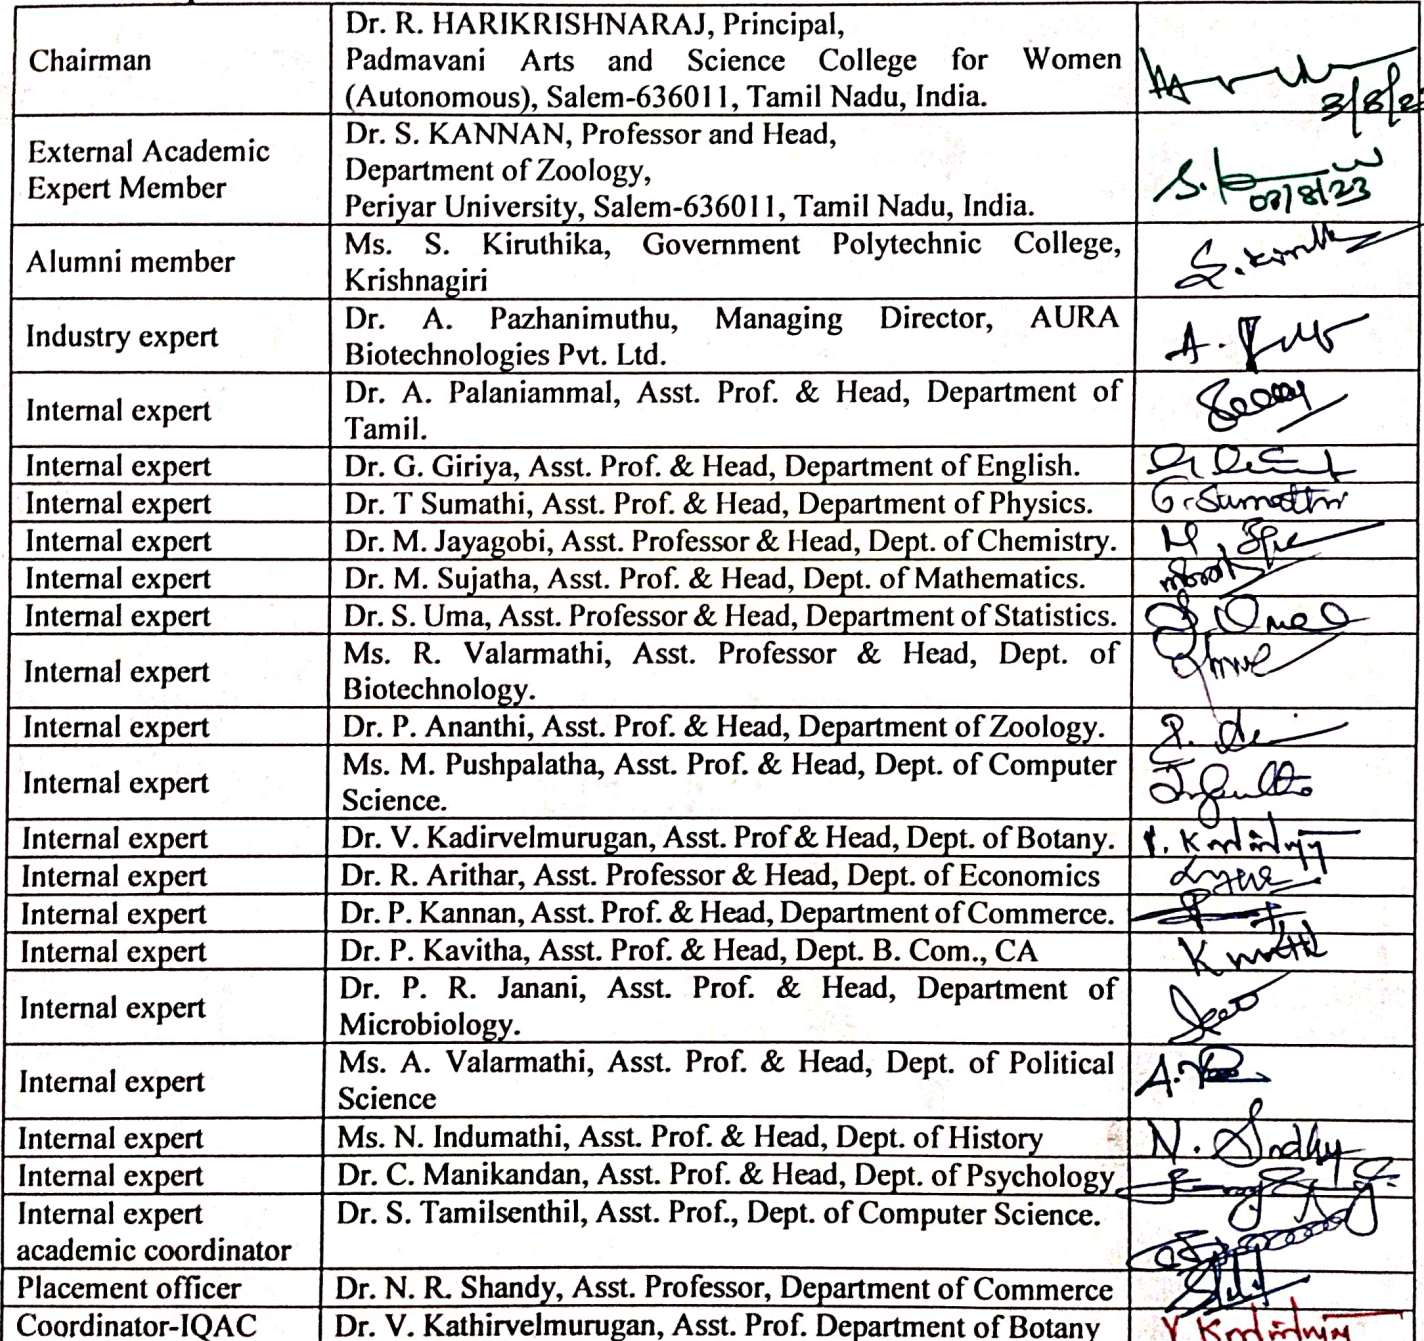 Chairman
Dr. R. HARIKRISHNARAJ, Principal,
Padmavani Arts and Science College for Women
(Autonomous), Salem-636011, Tamil Nadu, India.
3/8/2
External Academic
Expert Member
Dr. S. KANNAN, Professor and Head,
Department of Zoology,
Periyar University, Salem-636011, Tamil Nadu, India.
S.
03/8/23
Alumni member
Ms. S. Kiruthika, Government Polytechnic College,
Krishnagiri
Industry expert
Dr. A. Pazhanimuthu, Managing Director, AURA
Biotechnologies Pvt. Ltd.
A.
Internal expert
Dr. A. Palaniammal, Asst. Prof. & Head, Department of
Tamil.
Internal expert
Dr. G. Giriya, Asst. Prof. & Head, Department of English.
Internal expert
Dr. T Sumathi, Asst. Prof. & Head, Department of Physics.
Internal expert
Dr. M. Jayagobi, Asst. Professor & Head, Dept. of Chemistry.
Internal expert
Dr. M. Sujatha, Asst. Prof. & Head, Dept. of Mathematics.
Internal expert
Dr. S. Uma, Asst. Professor & Head, Department of Statistics.
Internal expert
Ms. R. Valarmathi, Asst. Professor & Head, Dept. of
Biotechnology.
Internal expert
Dr. P. Ananthi, Asst. Prof. & Head, Department of Zoology.
Internal expert
Ms. M. Pushpalatha, Asst. Prof. & Head, Dept. of Computer
Science.
Internal expert
Dr. V. Kadirvelmurugan, Asst. Prof & Head, Dept. of Botany.
Internal expert
Dr. R. Arithar, Asst. Professor & Head, Dept. of Economics
Internal expert
Dr. P. Kannan, Asst. Prof. & Head, Department of Commerce.
Internal expert
Dr. P. Kavitha, Asst. Prof. & Head, Dept. B. Com., CA
Internal expert
Dr. P. R. Janani, Asst. Prof. & Head, Department of
Microbiology.
Internal expert
Ms. A. Valarmathi, Asst. Prof. & Head, Dept. of Political
Science
A.
Internal expert
Ms. N. Indumathi, Asst. Prof. & Head, Dept. of History
N.
Internal expert
Dr. C. Manikandan, Asst. Prof. & Head, Dept. of Psychology
Internal expert
academic coordinator
Dr. S. Tamilsenthil, Asst. Prof., Dept. of Computer Science.
Placement officer
Dr. N. R. Shandy, Asst. Professor, Department of Commerce
Coordinator-IQAC
Dr. V. Kathirvelmurugan, Asst. Prof. Department of Botany